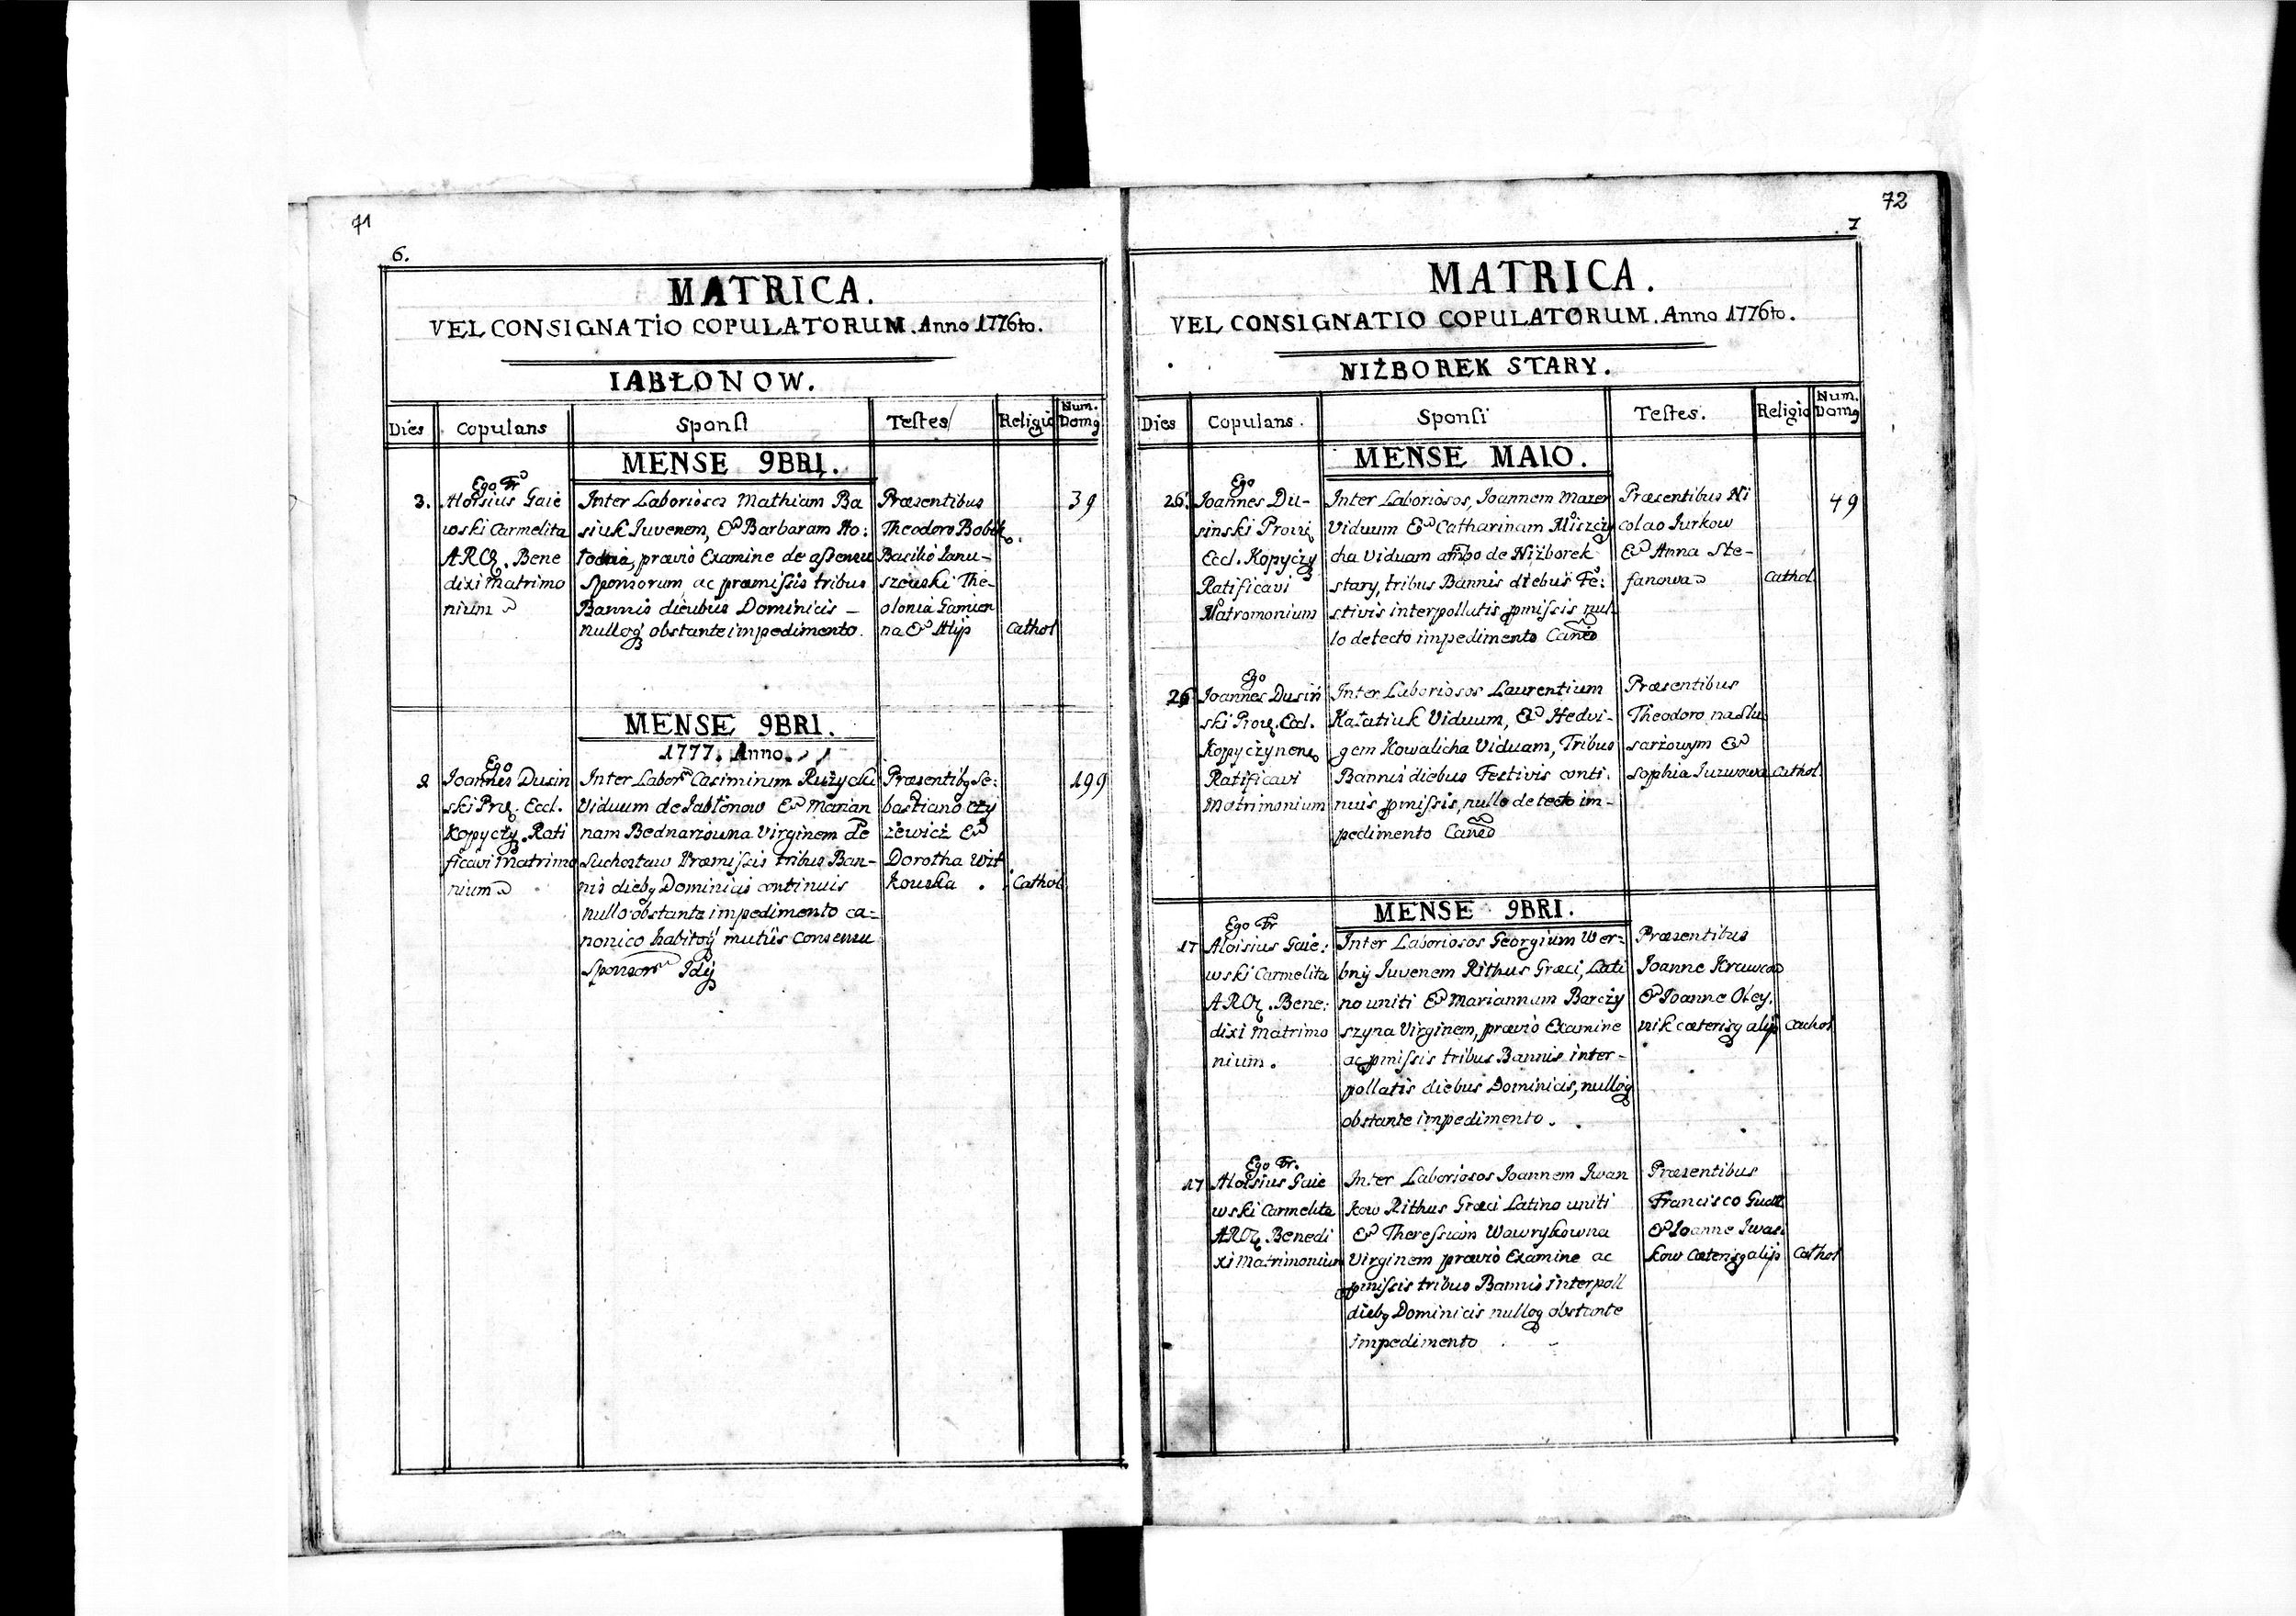 71
6.
MATRICA.
VEL CONSIGNATIO COPULATORUM. Anno 1776to.
IABŁONOW.
Dies
Copulans
Sponsi
Testes
Religio
Num. Domq
MENSE 9BRI.
3.
Ego Fr
Aloisius Gaie
wski Carmelita
ARQ. Bene
dixi Matrimo
nium
Inter Laboriosos Mathiam Ba
siuk Iuvenem, & Barbaram Ho:
prævio Examine de assensu
Sponsorum ac præmissis tribus
Bannis diebus Dominicis –
nulloq obstante impedimento.
Præsentibus
Theodoro
Basilio Ianu-
szewski The-
olonia Gamien
na & Alijs
Cathol
39
MENSE 9BRI.
1777. Anno.
2
Ego
Ioannes Dusin
ski Prę. Eccl.
Kopyczy. Rati
ficavi Matrimo
nium
Inter Labor Casimirum Ruzycki
Viduum de Jabłonow & Marian
nam Bednarzowna Virginem de
Suchostaw Præmissis tribus Ban-
nis diebq Dominicis continuis
nullo obstante impedimento ca-
nonico habitoq mutuis consensu
Sponsor Idq
Præsentibq Se:
bastiano Czy
zewicz &
Dorotha Wit
kowska .
Cathol
199
72
7
MATRICA.
VEL CONSIGNATIO COPULATORUM. Anno 1776to.
NIŻBOREK STARY.
Dies
Copulans.
Sponsi
Testes.
Religio
Num. Domq
MENSE MAIO.
26.
Ego
Ioannes Du-
sinski Prowi
Eccl. Kopyczy
Ratificavi
Matromonium
Inter Laboriosos, Ioannem Mazer
Viduum & Catharinam Miszczy
cha Viduam ambo de Niżborek
stary, tribus Bannis diebus Fe:
stivis interpollatis pmissis nul
lo detecto impedimento Caneo
Præsentibus Ni
colao Iurkow
& Anna Ste-
fanowa
Cathol
49
26
Ego
Ioannes Dusin
ski Prow. Eccl.
Kopyczynen
Ratificavi
Matrimonium
Inter Laboriosos Laurentium
Kałatiuk Viduum, & Hedvi-
gem Kowalicha Viduam, Tribus
Bannis diebus Festivis conti.
nuis pmissis, nullo detecto im-
pedimento Caneo
Præsentibus
Theodoro naslu
sarzowym &
Sophia Iurwowa
Cathol.
MENSE 9BRI.
17
Ego Fr
Aloisius Gaie:
wski Carmelita
ARQ. Bene:
dixi Matrimo
nium.
Inter Laboriosos Georgium Wer-
bnij Iuvenem Rithus Græci, Lati
no uniti & Mariannam Barczy
szyna Virginem, prævio Examine
ac pmissis tribus Bannis inter-
pollatis diebus Dominicis, nulloq
obstante impedimento.
Præsentibus
Ioanne Krawcow
& Ioanne Oley.
nik cæterisq alijs
Cathol
17
Ego Fr.
Aloisius Gaie
wski Carmelita
ARQ. Benedi
xi Matrimonium
Inter Laboriosos Ioannem Iwan
kow Rithus Græci Latino uniti
& Theressiam Wawrykowna
Virginem prævio Examine ac
pmissis tribus Bannis interpoll
diebq Dominicis nulloq obstante
impedimento
Præsentibus
Francisco
& Ioanne Iwas.
kow Cæterisq alijs
Cathol